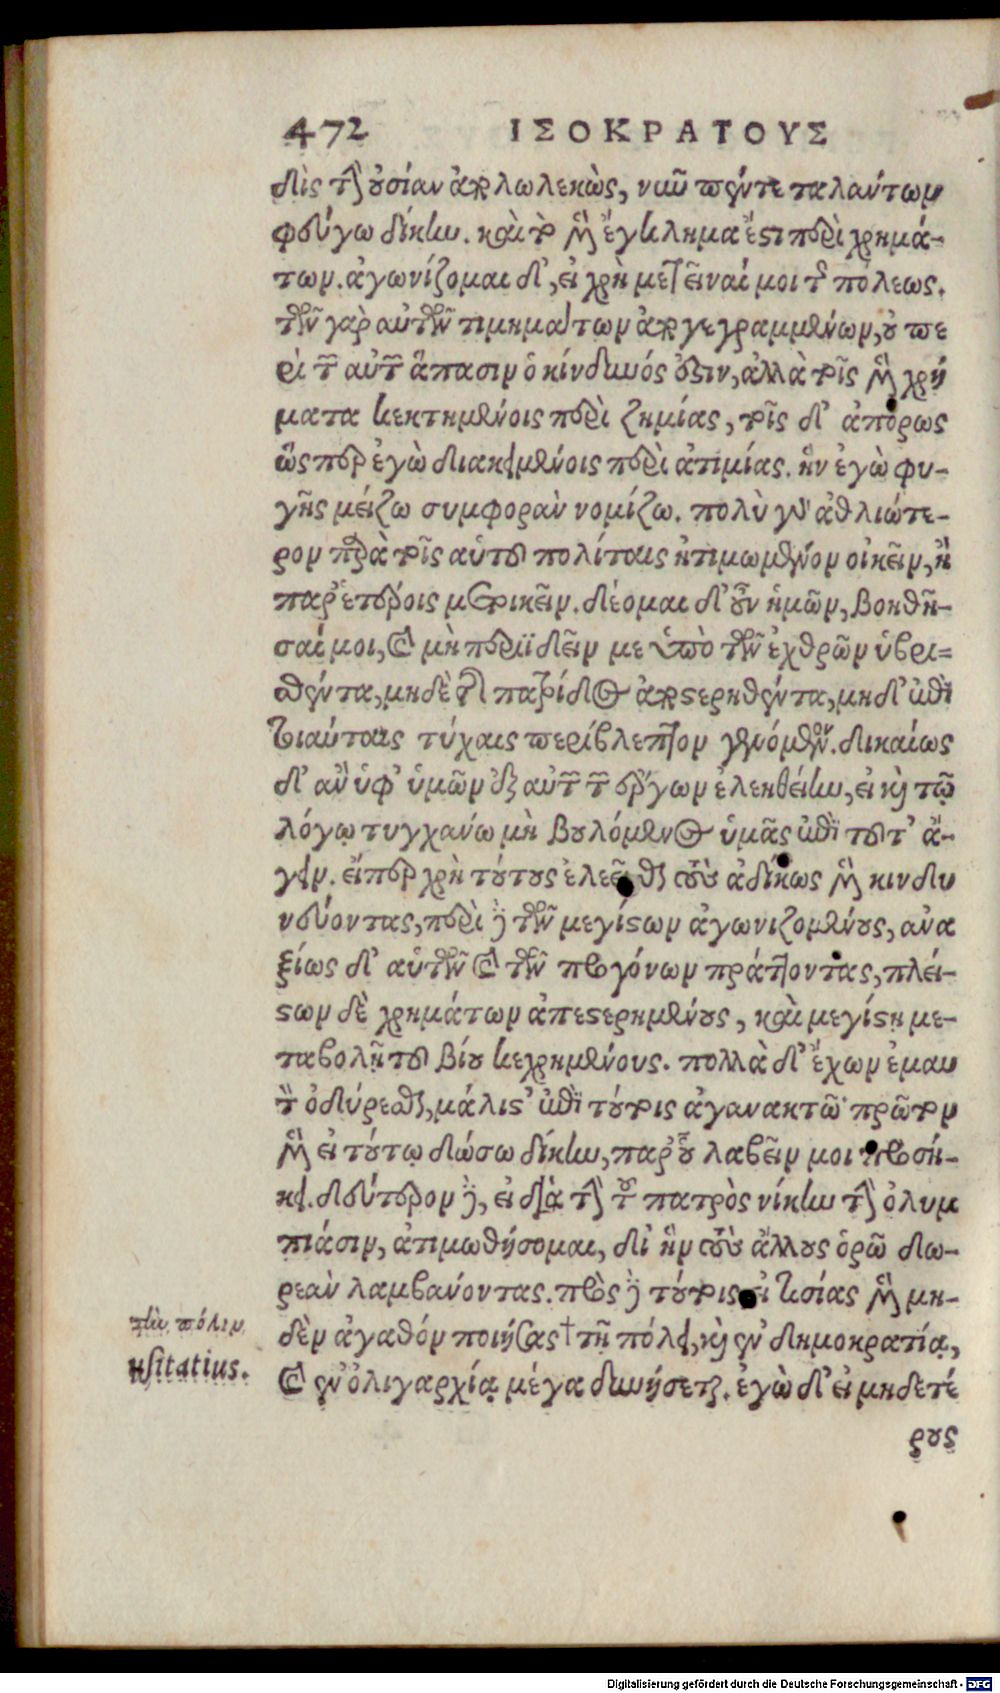 472 ΙΣΟΚΡΑΤΟΥΣ
δὶς τὴν οὐσίαν ἀπολωλεκὼς, νυνὶ πέντε ταλάντων
φεύγω δίκην. καὶ τὸ μὲν ἔγκλημα ἔστι περὶ χρημά-
των. ἀγωνίζομαι δ', εἰ χρὴ μετεῖναί μοι τῆς πόλεως.
τῶν γὰρ αὐτῶν τιμημάτων ἀπογεγραμμένων, οὐ πε
ρὶ τῶν αὐτῶν ἅπασιν ὁ κίνδυνός ὅξιν, ἀλλὰ τοῖς μὲν χρή
ματα κεκτημένοις περὶ ζημίας, τοῖς δ' ἀπόρως
ὥσπερ ἐγὼ διακειμένοις περὶ ἀτιμίας. ἣν ἐγὼ φυ-
γῆς μείζω συμφορὰν νομίζω. πολὺ γὰρ ἀθλιώτε-
ρον παρὰ τοῖς αὑτοῦ πολίταις ἠτιμωμένον οἰκεῖν, ἢ
παρ' ἑτέροις μετοικεῖν. δέομαι δ' οὖν ἡμῶν, βοηθῆ-
σαί μοι, καὶ μὴ περιϊδεῖν με ὑπὸ τῶν ἐχθρῶν ὑβρι=
σθέντα, μηδὲ τῆς πατρίδος ἀποστερηθέντα, μηδ' ἐπὶ
τοιαύταις τύχαις περίβλεπτον γενόμενον. δικαίως
δ' ἂν ὑφ' ὑμῶν ἐξ αὐτῶν τῶν ἔργων ἐλεηθείην, εἰ καὶ τῷ
λόγῳ τυγχάνω μὴ βουλόμενος ὑμᾶς ἐπὶ τοῦτ' ἄ-
γειν. εἴπερ χρὴ τούτους ἐλεεῖσθαι τοὺς ἀδίκως μὲν κινδυ
νεύοντας, περὶ δὲ τῶν μεγίστων ἀγωνιζομένους, ἀνα
ξίως δ' αὑτῶν καὶ τῶν προγόνων πράττοντας, πλεί-
στων δὲ χρημάτων ἀπεστερημένους, καὶ μεγίστῃ με-
ταβολῇ τοῦ βίου κεχρημένους. πολλὰ δ' ἔχων ἐμαυ
τὸν ὀδύρεσθαι, μάλιστ' ἐπὶ τούτοις ἀγανακτῶ· πρῶτον
μὲν εἰ τούτῳ δώσω δίκην, παρ' οὗ λαβεῖν μοι προσή-
κει. δεύτερον δὲ, εἰ διὰ τὴν τοῦ πατρὸς νίκην τὴν ὀλυμ
πιάσιν, ἀτιμωθήσομαι, δι' ἣν τοὺς ἄλλους ὁρῶ δω-
ρεὰν λαμβάνοντας. πρὸς δὲ τούτοις εἰ Τισίας μὲν μη-
δὲν ἀγαθὸν ποιήσας † τῇ πόλει, καὶ ἐν δημοκρατίᾳ,
καὶ ἐν ὀλιγαρχίᾳ μέγα δυνήσεται. ἐγὼ δ' εἰ μηδετέ
ρους
τὴν πόλιν
usitatius.
Digitalisierung gefördert durch die Deutsche Forschungsgemeinschaft - DFG